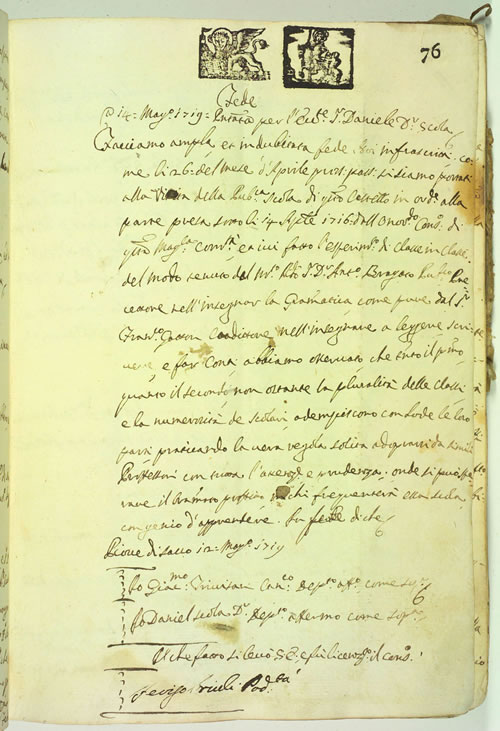 76
Fede
a 14 Magº 1719 Pntata per l'Ecc.te Sr. Daniele Dr. Scola
Facciamo ampla, et indubitata fede noi infrascritti, co-
me li 26 del mese d'Aprile pros: pass: si siamo portati
alla visita della Pub.ca Scola di qsto Castello in ordᵉ alla
parte presa sotto li 14 1716 dall Onordo Consº di
qsta Magca Comtà et ivi fatto l'esperimto di classe in classe
del modo tenuto dal Dr Anto Bragato Pre
cettore nell'insegnar la Gramatica come pure dal Sr
Franco Conditore nell'insegnare a leggere scri
vere, e far Conti abbiamo osservato che tanto il primo
quanto il secondo non ostante la pluralità delle classi
e la numerosità de scolari adempiscono con lode le loro
parti praticando la vera regola solita adoprarsi da simili
Professori con tutta l'attenze e prudenza; onde si può spe
rare il profitto in chi frequenterà essa scola
con genio d'apprendere. In fede di che
Piove di Sacco 12 Magº 1719
Io Giacmo Trivisan Canco Depto affo come sopa
Io Daniel Scola Dr Depto affermo come sopa
Il che fatto si levò S. E. e fù licenzto il Consº
Priuli Podtà